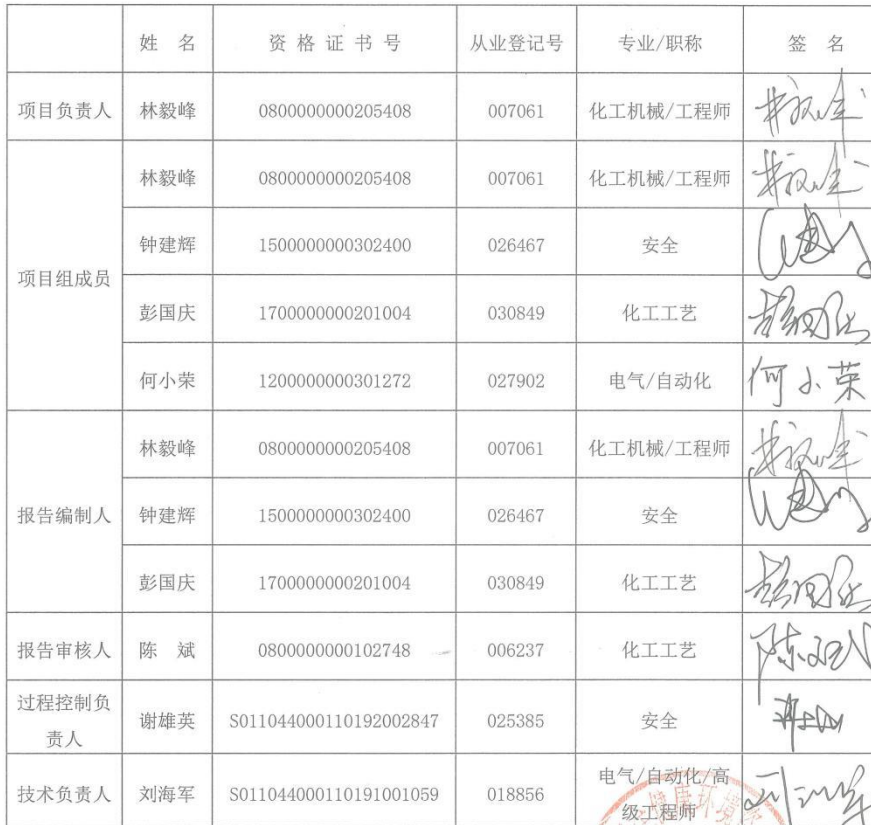 姓 名 资 格 证 书 号 从业登记号 专业/职称 签 名
项目负责人 林毅峰 0800000000205408 007061 化工机械/工程师 林毅峰
项目组成员 林毅峰 0800000000205408 007061 化工机械/工程师 林毅峰
钟建辉 1500000000302400 026467 安全
彭国庆 1700000000201004 030849 化工工艺 彭国庆
何小荣 1200000000301272 027902 电气/自动化 何小荣
报告编制人 林毅峰 0800000000205408 007061 化工机械/工程师 林毅峰
钟建辉 1500000000302400 026467 安全
彭国庆 1700000000201004 030849 化工工艺 彭国庆
报告审核人 陈 斌 0800000000102748 006237 化工工艺 陈斌
过程控制负
责人 谢雄英 S011044000110192002847 025385 安全
技术负责人 刘海军 S011044000110191001059 018856 电气/自动化/高
级工程师 刘海军
健康环境